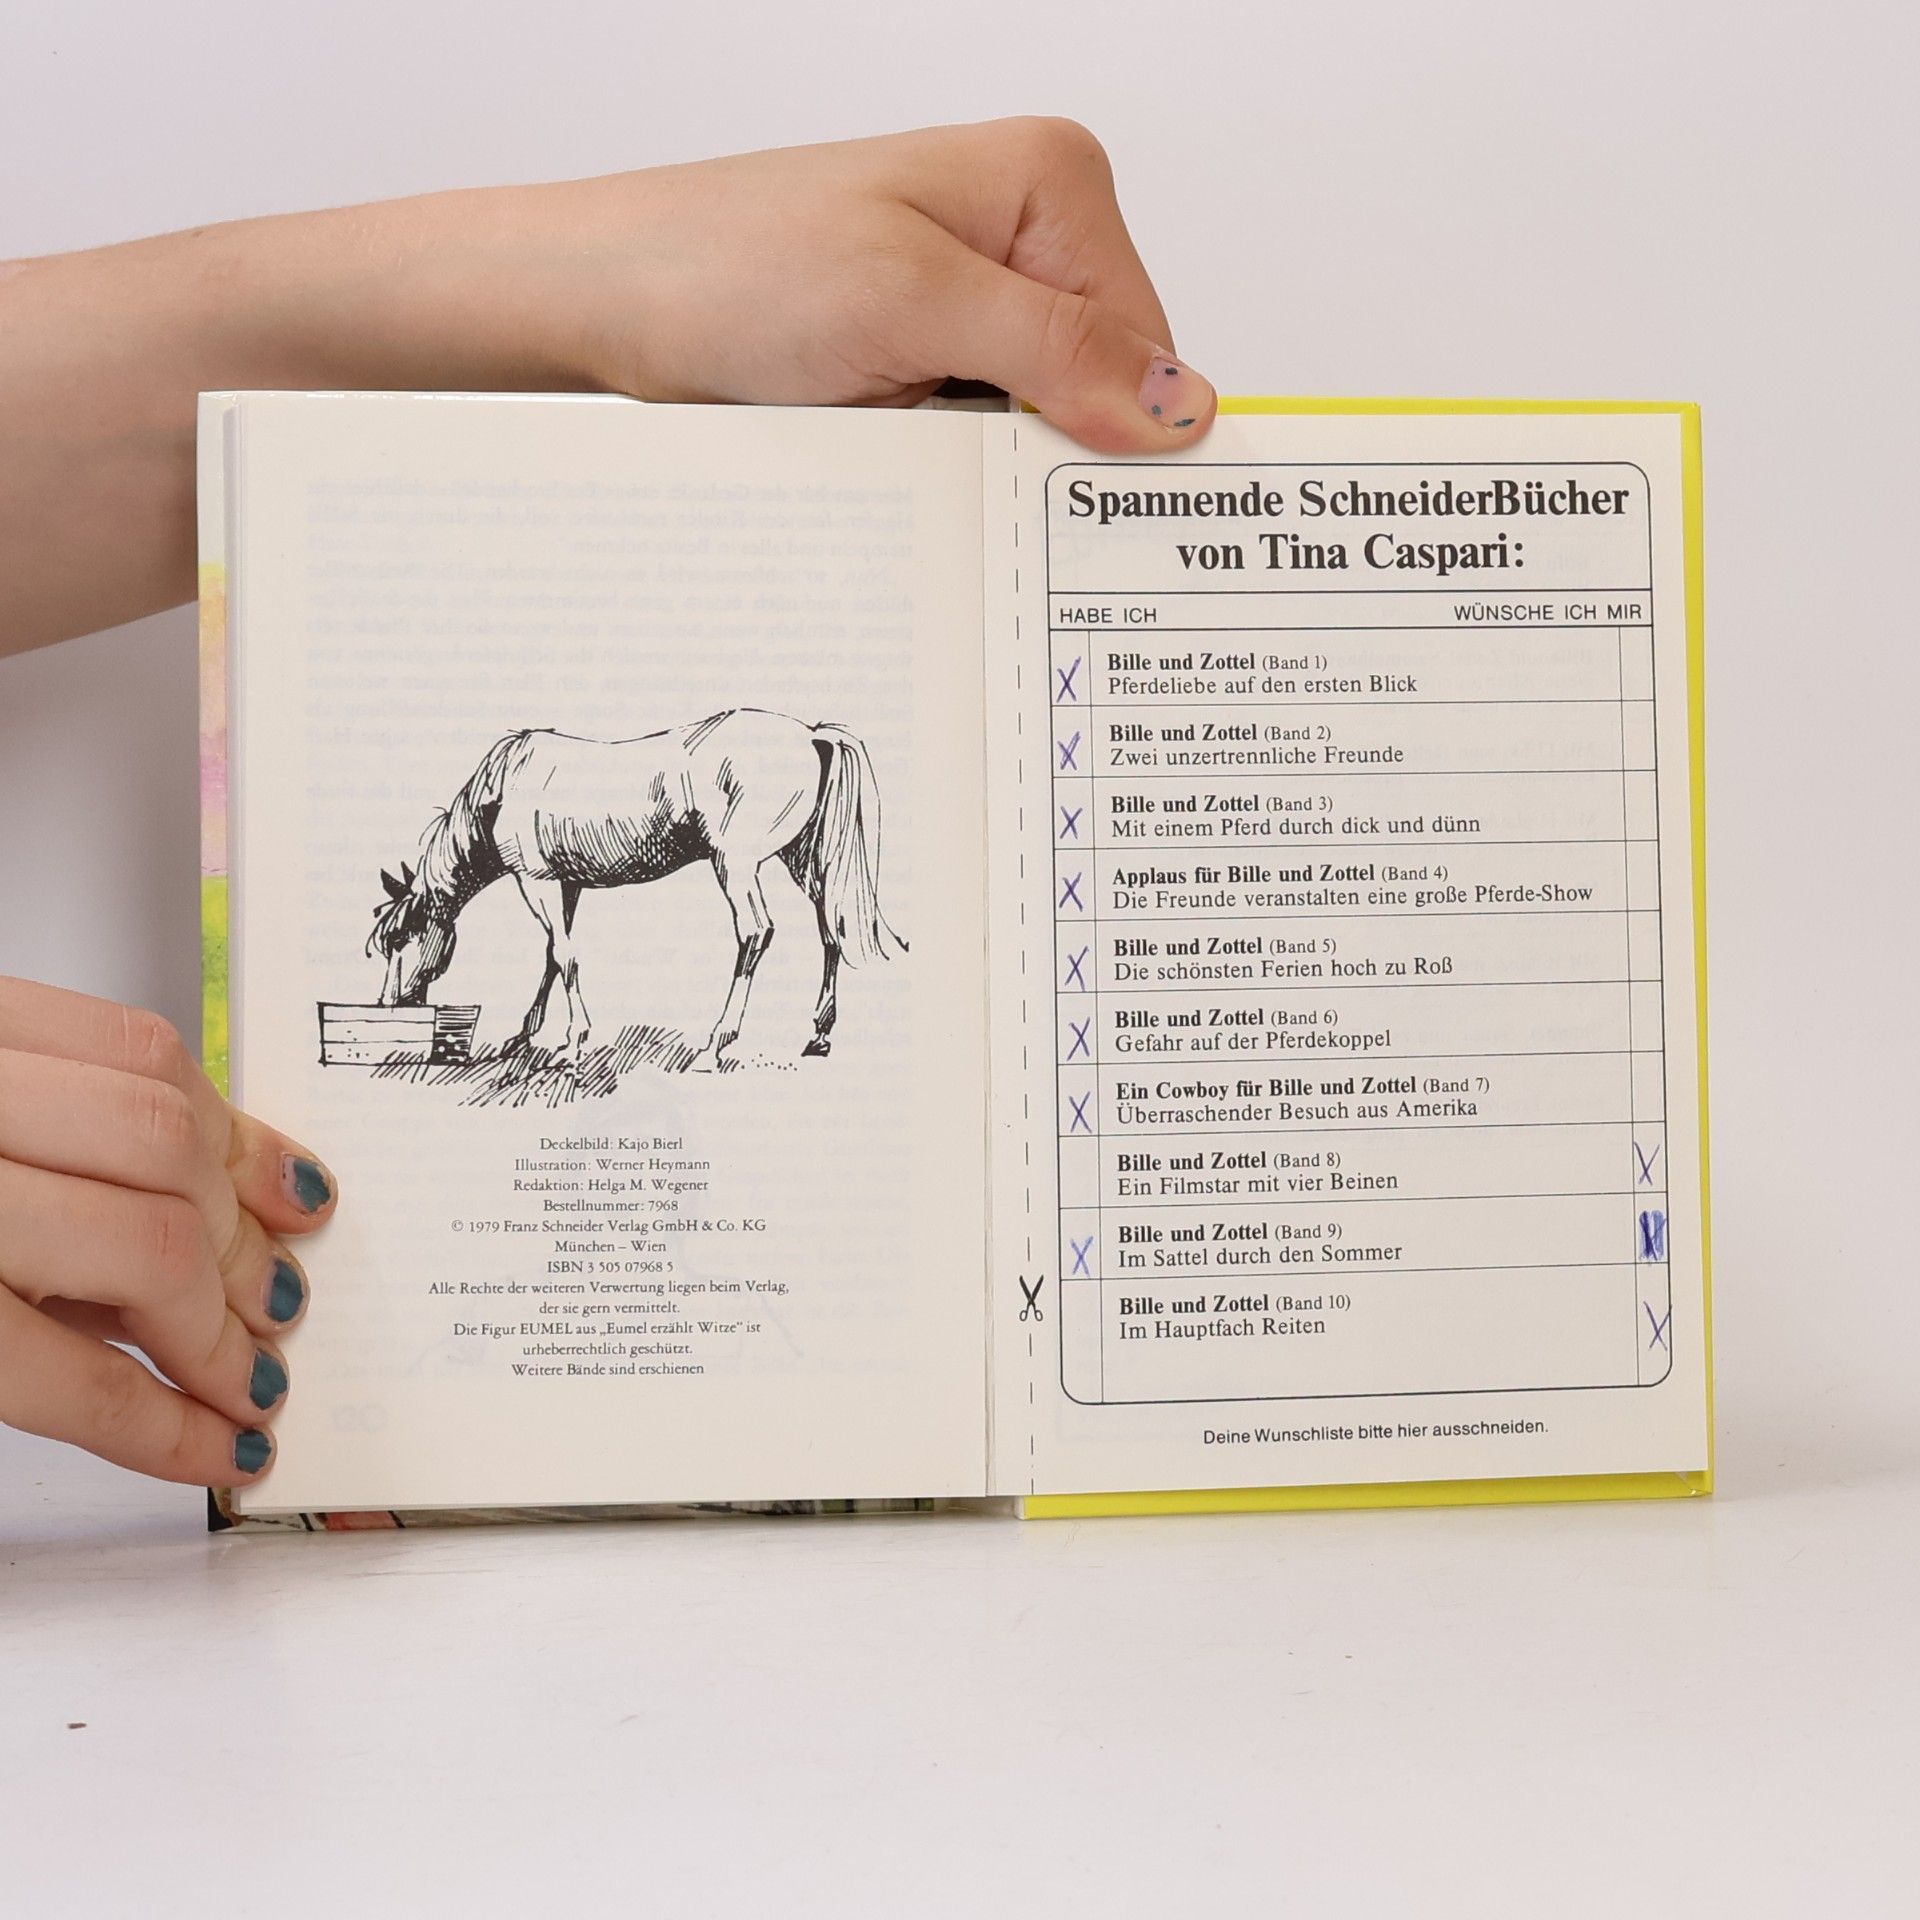 Deckelbild: Kajo Bierl
Illustration: Werner Heymann
Redaktion: Helga M. Wegener
Bestellnummer: 7968
© 1979 Franz Schneider Verlag GmbH & Co. KG
München – Wien
ISBN 3 505 07968 5
Alle Rechte der weiteren Verwertung liegen beim Verlag,
der sie gern vermittelt.
Die Figur EUMEL aus „Eumel erzählt Witze" ist
urheberrechtlich geschützt.
Weitere Bände sind erschienen
Spannende SchneiderBücher
von Tina Caspari:
HABE ICH WÜNSCHE ICH MIR
X Bille und Zottel (Band 1)
Pferdeliebe auf den ersten Blick
X Bille und Zottel (Band 2)
Zwei unzertrennliche Freunde
X Bille und Zottel (Band 3)
Mit einem Pferd durch dick und dünn
X Applaus für Bille und Zottel (Band 4)
Die Freunde veranstalten eine große Pferde-Show
X Bille und Zottel (Band 5)
Die schönsten Ferien hoch zu Roß
X Bille und Zottel (Band 6)
Gefahr auf der Pferdekoppel
X Ein Cowboy für Bille und Zottel (Band 7)
Überraschender Besuch aus Amerika
Bille und Zottel (Band 8) X
Ein Filmstar mit vier Beinen
X Bille und Zottel (Band 9)
Im Sattel durch den Sommer
Bille und Zottel (Band 10) X
Im Hauptfach Reiten
Deine Wunschliste bitte hier ausschneiden.